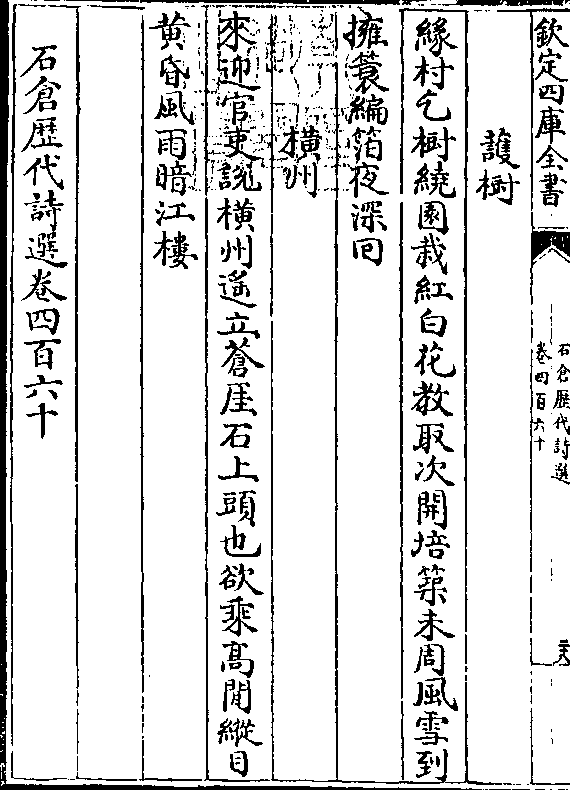 欽定四庫全書
石倉歷代詩選
卷四百六十
護樹
緣村乞樹繞園栽紅白花教取次開培築未周風雪到
擁蓑編箔夜深回
橫州
來迎官吏說橫州遙立蒼厓石上頭也欲乘高閒縱目
黄昏風雨暗江樓
石倉歷代詩選卷四百六十